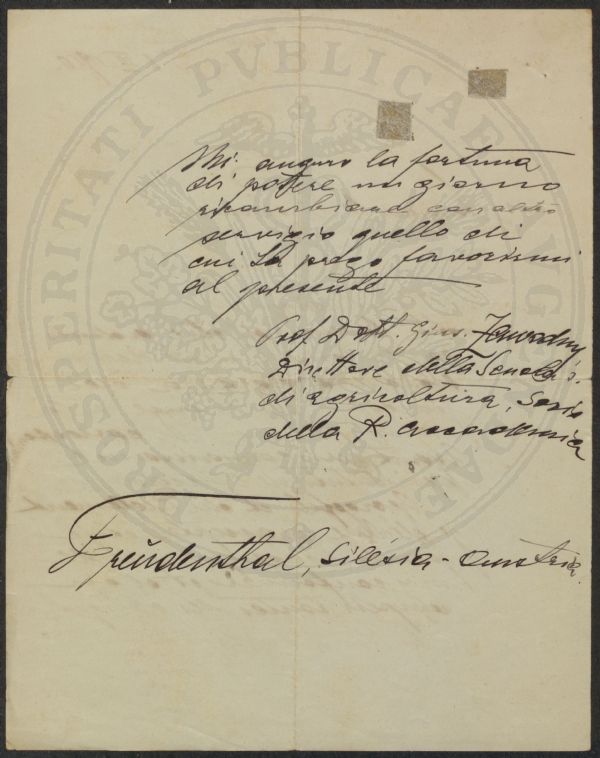 PROSPERITATI PVBLICAE AVGENDAE
Mi auguro la fortuna
di potere un giorno
ricambiare con altro
servizio quello di
cui La prego favorirmi
al presente
Prof. Dott. Gius. Zawodny
Direttore della Scuola s.
di agricoltura, Socio
della R. Accademia
Freudenthal, Silesia - Austria.